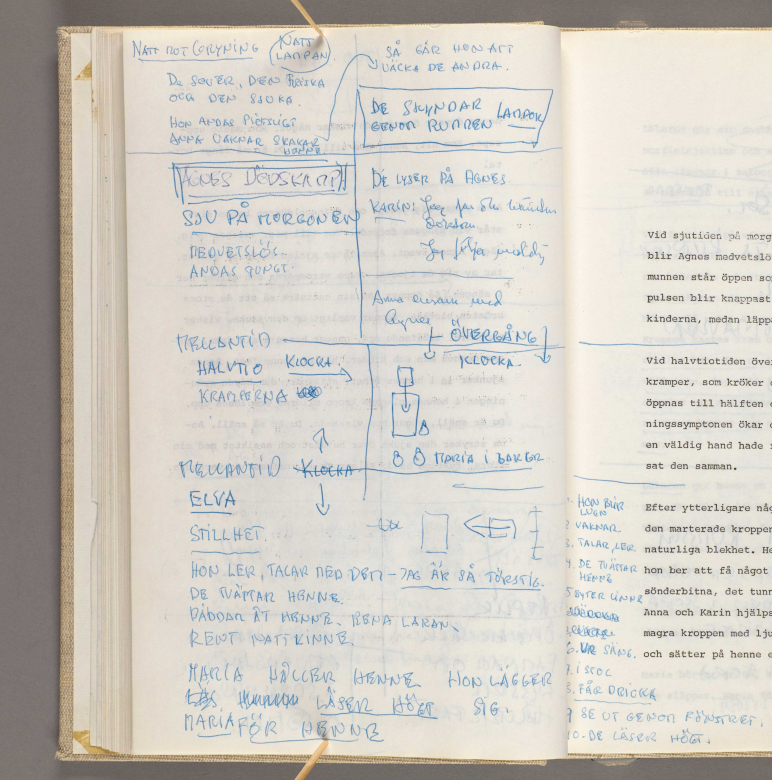 NATT MOT GRYNING
NATT
LAMPAN
DE SOVER, DEN FRISKA
OCH DEN SJUKA.
HON ANDAS PLÖTSLIGT
ANNA VAKNAR SKAKAR
HENNE
SÅ GÅR HON ATT
VÄCKA DE ANDRA.
DE SKYNDAR LAMPOR
GENOM RUMMEN
AGNES DÖDSKAMP
SJU PÅ MORGONEN
MEDVETSLÖS.
ANDAS TUNGT.
DE LYSER PÅ AGNES
KARIN: Jag
Jag
Anna ensam med
Agnes
ÖVERGÅNG
KLOCKA.
MELLANTID
HALVTIO KLOCKA.
KRAMPERNA
MARIA I BAKGR
MELLANTID KLOCKA
ELVA
STILLHET.
HON LER, TALAR MED DEM – JAG ÄR SÅ TÖRSTIG.
DE TVÄTTAR HENNE.
BÄDDAR ÅT HENNE. RENA LAKAN.
RENT NATTLINNE.
MARIA HÅLLER HENNE HON LÄGGER
LÄSER HÖGT SIG.
MARIA FÖR HENNE
Vid sjutiden på morg
blir Agnes medvetslö
munnen står öppen so
pulsen blir knappast
kinderna, medan läpp
Vid halvtiotiden över
kramper, som kröker
öppnas till hälften
ningssymptonen ökar
en väldig hand hade
sat den samman.
Efter ytterligare någ
den marterade kroppen
naturliga blekhet. He
hon ber att få något
sönderbitna, det tunn
Anna och Karin hjälps
magra kroppen med lju
och sätter på henne e
1. HON BLIR
LUGN
2 VAKNAR
3. TALAR, LER.
4. DE TVÄTTAR
HENNE
5 BYTER LINNE
6. UR SÄNG.
7. I STOL
8. FÅR DRICKA
9 SE UT GENOM FÖNSTRET.
10. DE LÄSER HÖGT.